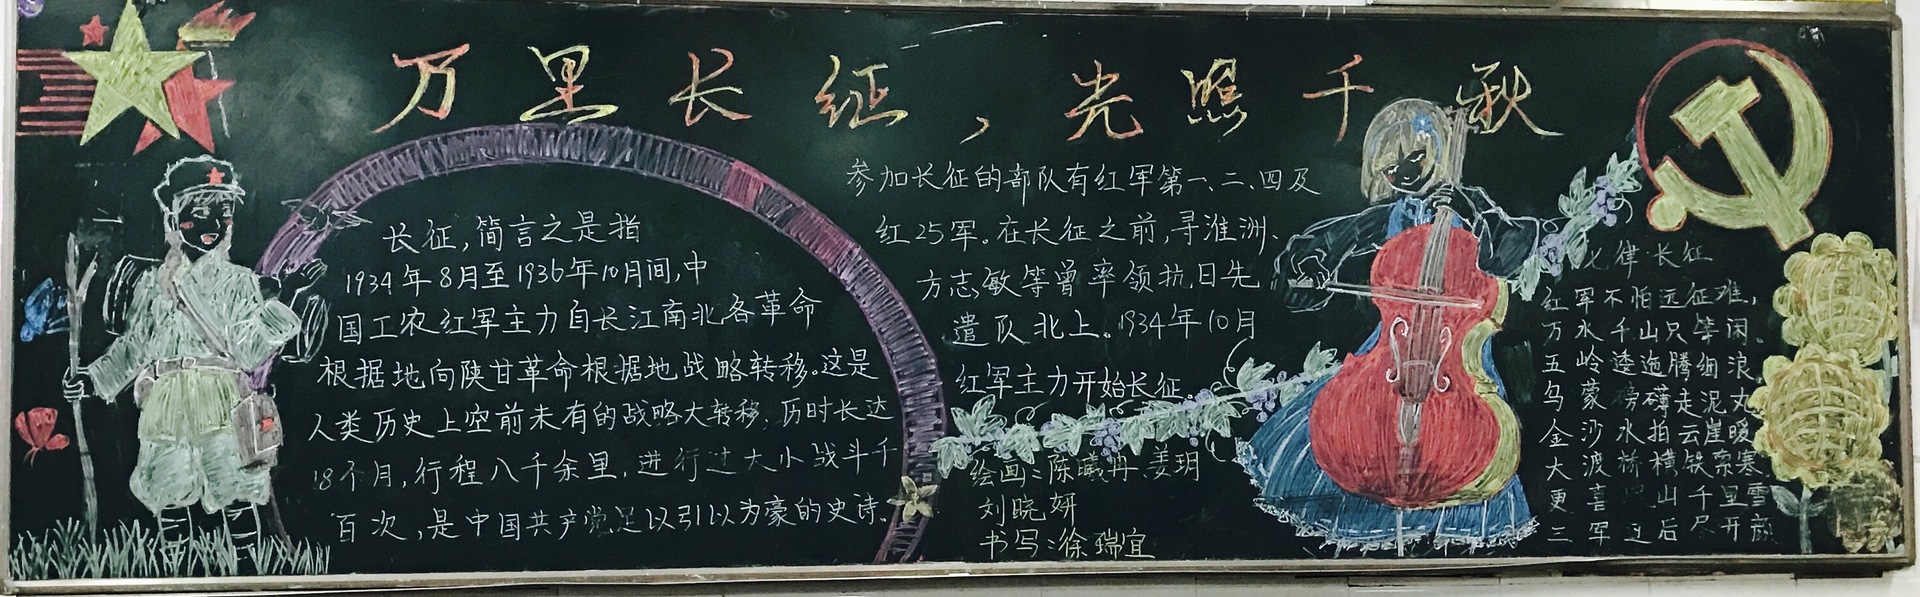 万里长征，光照千秋
长征，简言之是指
1934年8月至1936年10月间，中
国工农红军主力自长江南北各革命
根据地向陕甘革命根据地战略转移。这是
人类历史上空前未有的战略大转移，历时长达
18个月，行程八千余里，进行过大小战斗千
百次，是中国共产党足以引以为豪的史诗。
参加长征的部队有红军第一、二、四及
红25军。在长征之前，寻淮洲、
方志敏等曾率领抗日先
遣队北上。1934年10月
红军主力开始长征
绘画：陈曦冉、姜玥
刘晓妍
书写：徐瑞宜
七律·长征
红军不怕远征难，
万水千山只等闲。
五岭逶迤腾细浪
乌蒙磅礴走泥丸
金沙水拍云崖暖
大渡桥横铁索寒
更喜岷山千里雪
三军过后尽开颜